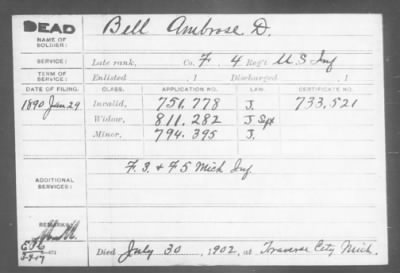 DEAD
NAME OF SOLDIER: Bell Ambrose D.
SERVICE: Late rank, Co. F. 4 Reg't U.S. Inf
TERM OF SERVICE: Enlisted , 1 Discharged , 1
DATE OF FILING. CLASS. APPLICATION NO. LAW. CERTIFICATE NO.
1890 Jan 29 Invalid, 751.778 J. 733,521
Widow, 811.282 J
Minor, 794.395 J.
F. 3. & F 5 Mich Inf.
ADDITIONAL SERVICES:
REMARKS:
Died July 30, 1902, at Traverse City, Mich.